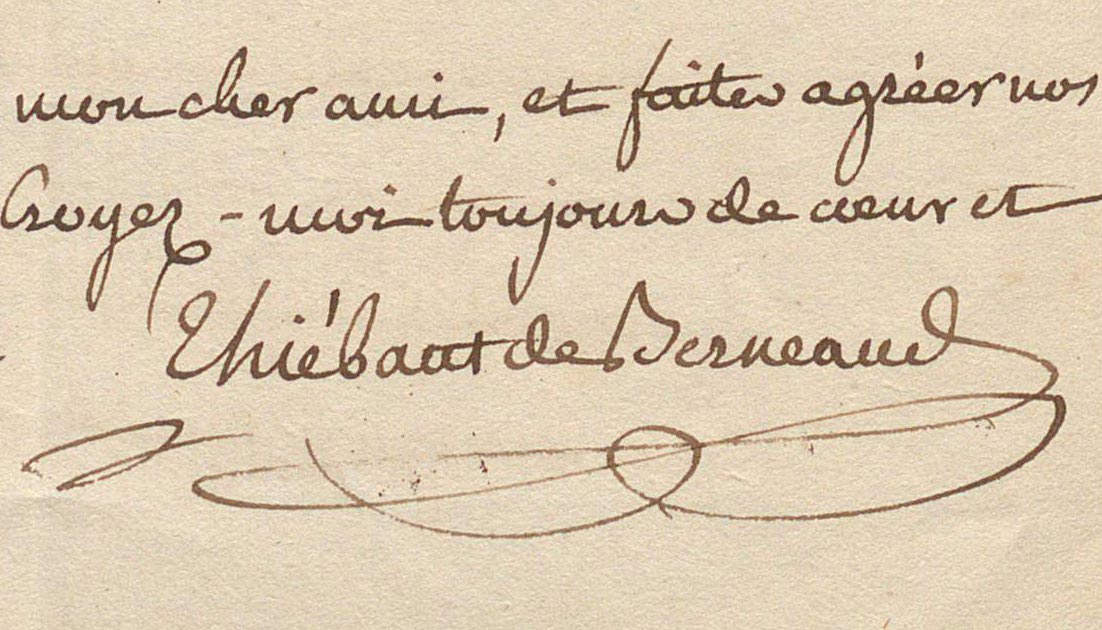 mon cher ami, et faites agréer nos
Croyez-moi toujours de cœur et
Thiébaut de Berneaud